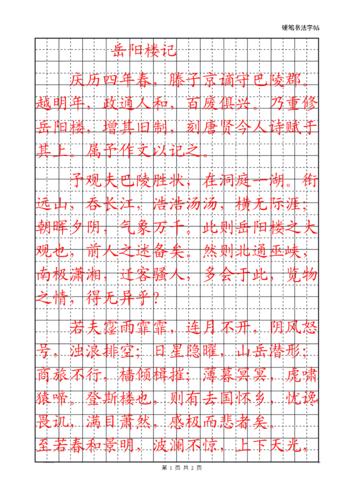 硬笔书法字帖
岳阳楼记
庆历四年春，滕子京谪守巴陵郡。
越明年，政通人和，百废俱兴。乃重修
岳阳楼，增其旧制，刻唐贤今人诗赋于
其上。属予作文以记之。
予观夫巴陵胜状，在洞庭一湖。衔
远山，吞长江，浩浩汤汤，横无际涯；
朝晖夕阴，气象万千。此则岳阳楼之大
观也，前人之述备矣。然则北通巫峡，
南极潇湘，迁客骚人，多会于此，览物
之情，得无异乎？
若夫霪雨霏霏，连月不开，阴风怒
号，浊浪排空；日星隐曜，山岳潜形；
商旅不行，樯倾楫摧；薄暮冥冥，虎啸
猿啼。登斯楼也，则有去国怀乡，忧谗
畏讥，满目萧然，感极而悲者矣。
至若春和景明，波澜不惊，上下天光，
第 1 页 共 2 页